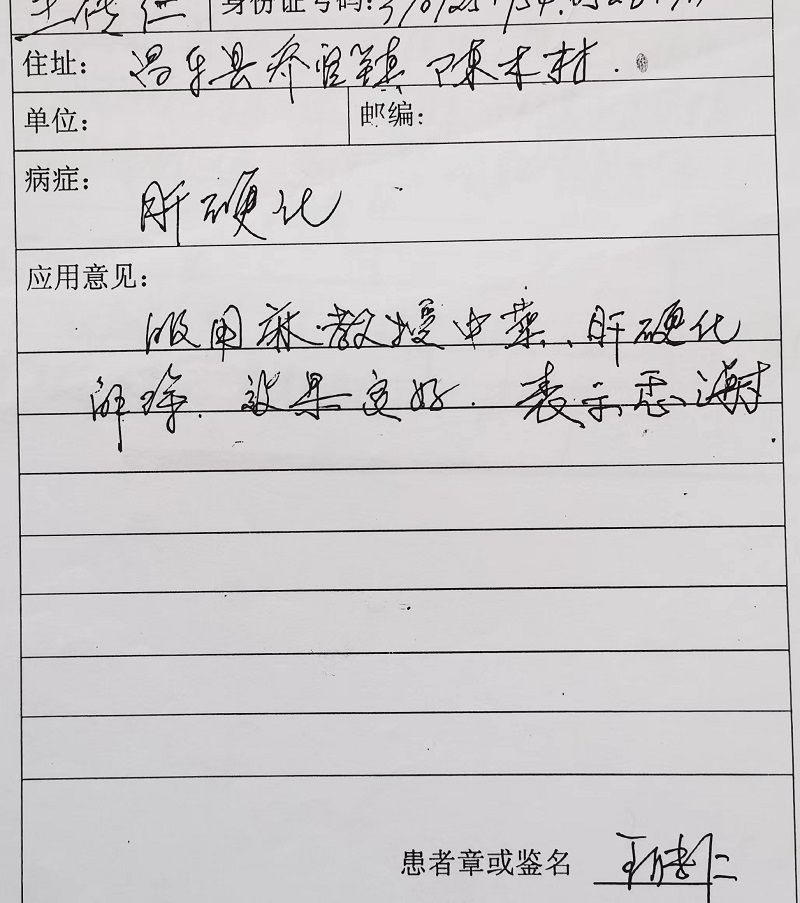 身份证号码:
住址: 昌乐县乔官镇陈木村.
单位: 邮编:
病症: 肝硬化
应用意见:
服用麻教授中药、肝硬化
解除. 效果良好. 表示感谢
患者章或鉴名